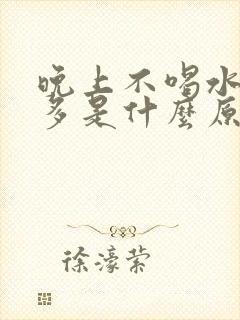 晚上不喝水
多是什麼原
徐濠萦